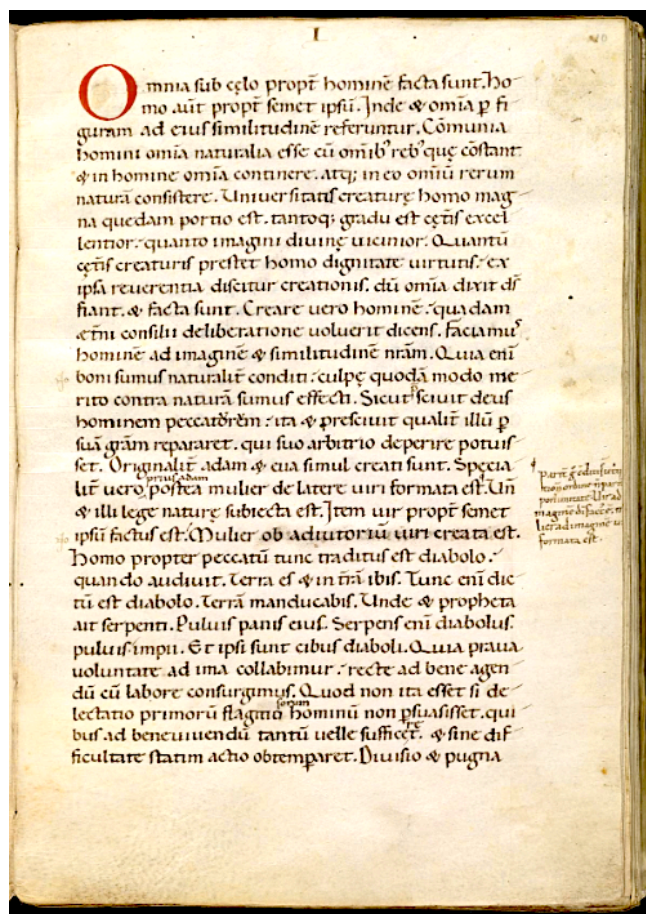 I
Omnia sub cęlo propt̄ hominē facta sunt. Ho-
mo aūt propt̄ semet ipsū. Inde & om̄ia p̱ fi-
guram ad eius similitudinē referuntur. Cōmunia
homini om̄ia naturalia esse cū om̄ib' reb' quę cōstant
& in homine om̄ia continere. atq; in eo om̄iū rerum
naturā consistere. Uniuersitatis creaturę homo mag-
na quedam portio est. tantoq; gradu est cęt̄is excel-
lentior. quanto imagini diuinę uicinior. Quantū
cęt̄is creaturis prestet homo dignitate uirtutis. ex
ipsa reuerentia discitur creationis. dū om̄ia dixit d̄s
fiant. & facta sunt. Creare uero hominē. quadam
ęt̄ni consilii deliberatione uoluerit dicens. Faciamus
hominē ad imaginē & similitudinē n̄ram. Quia eni
boni sumus naturalit̄ conditi. culpę quodā modo me-
rito contra naturā sumus effecti. Sicut p̱sciuit deus
hominem peccatorem. ita & presciuit qualit̄ illū p̱
suā gr̄am repararet. qui suo arbitrio deperire potuis-
set. Originalit̄ adam & eua simul creati sunt. Specia-
prius adam
lit̄ uero postea mulier de latere uiri formata est. Un̄
& illi lege naturę subiecta est. Item uir propt̄ semet
ipsū factus est. Mulier ob adiutoriū uiri creata est.
Homo propter peccatū tunc traditus est diabolo.
quando audiuit. Terra es & in t̄rā ibis. Tunc eni dic-
tū est diabolo. Terrā manducabis. Unde & propheta
ait serpenti. Puluis panis eius. Serpens eni diabolus.
puluis impii. Et ipsi sunt cibus diaboli. Quia praua
uoluntate ad ima collabimur. recte ad bene agen-
dū cū labore consurgimus. Quod non ita esset si de-
sorum
lectatio primorū flagitio hominū non p̱suasisset. qui-
re
bus ad bene uiuendū tantū uelle sufficet. & sine dif-
ficultate statim actio obtemp̱aret. Diuisio & pugna
formata est.